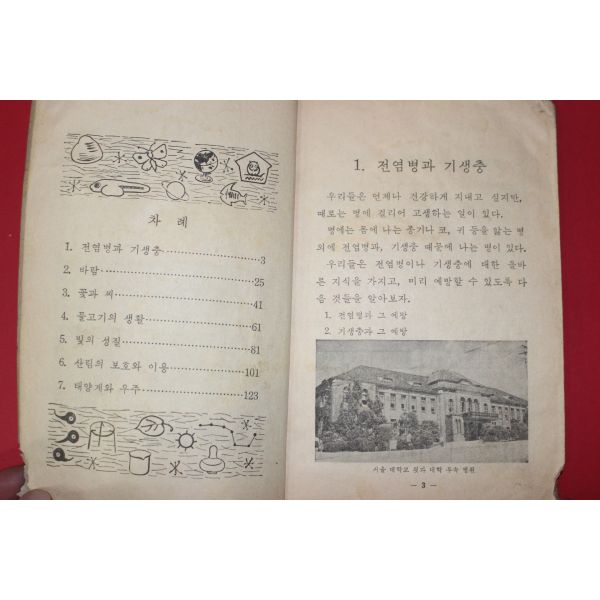 차 례
1. 전염병과 기생충 3
2. 바람 25
3. 꽃과 씨 41
4. 물고기의 생활 61
5. 빛의 성질 81
6. 산림의 보호와 이용 101
7. 태양계와 우주 123
1. 전염병과 기생충
우리들은 언제나 건강하게 지내고 싶지만,
때로는 병에 걸리어 고생하는 일이 있다.
병에는 몸에 나는 종기나 코, 귀 등을 앓는 병
외에 전염병과, 기생충 때문에 나는 병이 있다.
우리들은 전염병이나 기생충에 대한 올바
른 지식을 가지고, 미리 예방할 수 있도록 다
음 것들을 알아보자.
1. 전염병과 그 예방
2. 기생충과 그 예방
서울 대학교 의과 대학 부속 병원
— 3 —